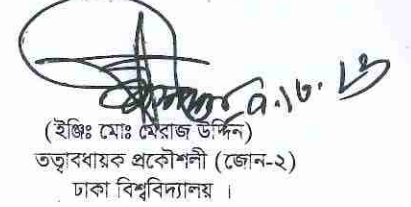 (ইঞ্জিঃ মোঃ মেরাজ উদ্দিন)
তত্বাবধায়ক প্রকৌশলী (জোন-২)
ঢাকা বিশ্ববিদ্যালয় ।